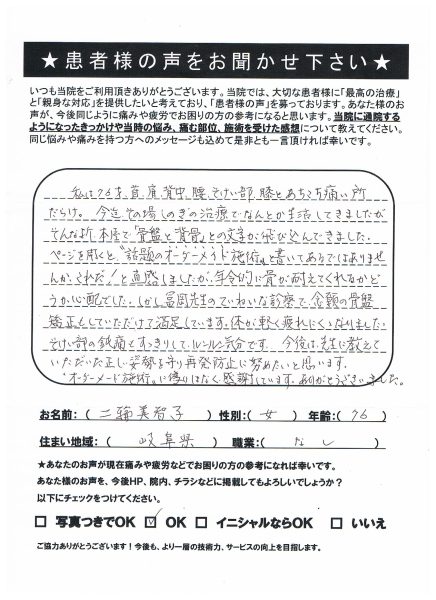 ★患者様の声をお聞かせ下さい★
いつも当院をご利用頂きありがとうございます。当院では、大切な患者様に「最高の治療」
と「親身な対応」を提供したいと考えており、「患者様の声」を募っております。あなた様のお
声が、今後同じように痛みや疲労でお困りの方の参考になると思います。当院に通院する
ようになったきっかけや当時の悩み、痛む部位、施術を受けた感想について教えてください。
同じ悩みや痛みを持つ方へのメッセージも込めて是非とも一言頂ければ幸いです。
私は76才、首、肩、背中、腰、そけい部、膝とあちこち痛い所
だらけ。今迄その場しのぎの治療でなんとか生活してきましたが
そんな折、本屋で「骨盤と背骨」との文字が飛び込んできました。
ページを開くと、"話題のオーダーメイド施術"と書いてあるではありませ
んか。これだ!と直感しましたが、年令的に骨が耐えてくれるかど
うか心配でした。しかし冨岡先生のていねいな診察で、念願の骨盤
矯正もしていただけて満足しています。体が軽く疲れにくくなりました。
そけい部の鈍痛もすっきりして、ルンルン気分です。今後は先生に教えて
いただいた正しい姿勢を守り再発防止に努めたいと思います。
"オーダーメード施術"に偽りはなく感謝しています。ありがとうございました。
お名前:(二輪美智子)性別:(女)年齢:(76)
住まい地域:(岐阜県)職業:(なし)
★あなたのお声が現在痛みや疲労などでお困りの方の参考になれば幸いです。
あなた様のお声を、今後HP、院内、チラシなどに掲載してもよろしいでしょうか?
以下にチェックをつけてください。
□ 写真つきでOK ☑ OK □ イニシャルならOK □ いいえ
ご協力ありがとうございます!今後も、より一層の技術力、サービスの向上を目指します。